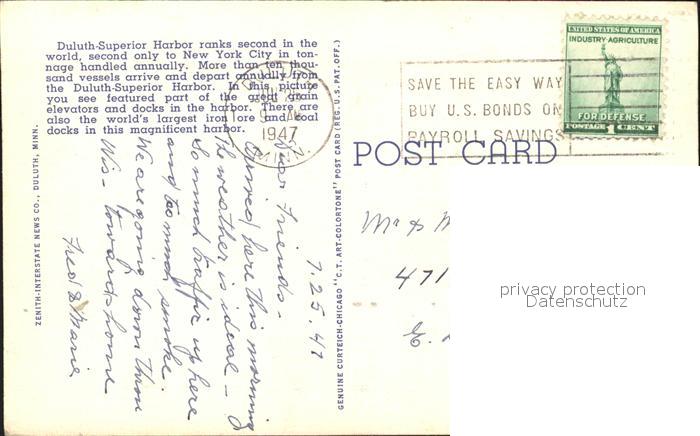 Duluth-Superior Harbor ranks second in the
world, second only to New York City in ton-
nage handled annually. More than ten thou-
sand vessels arrive and depart annually from
the Duluth-Superior Harbor. In this picture
you see featured part of the great grain
elevators and docks in the harbor. There are
also the world's largest iron ore and coal
docks in this magnificent harbor.
ZENITH-INTERSTATE NEWS CO., DULUTH, MINN.
1947
MINN.
SAVE THE EASY WAY
BUY U.S. BONDS ON
PAYROLL SAVINGS
UNITED STATES OF AMERICA
INDUSTRY-AGRICULTURE
FOR DEFENSE
POSTAGE 1 CENT
POST CARD
GENUINE CURTEICH-CHICAGO "C.T. ART-COLORTONE" POST CARD (REG. U.S. PAT. OFF.)
7.25.47
Dear Friends -
Arrived here this morning
The weather is ideal -
So much traffic up here
and too much smoke.
We are going down thru
Wis - towards home
Fred & Marie
Mr &
471
E.
privacy protection
Datenschutz